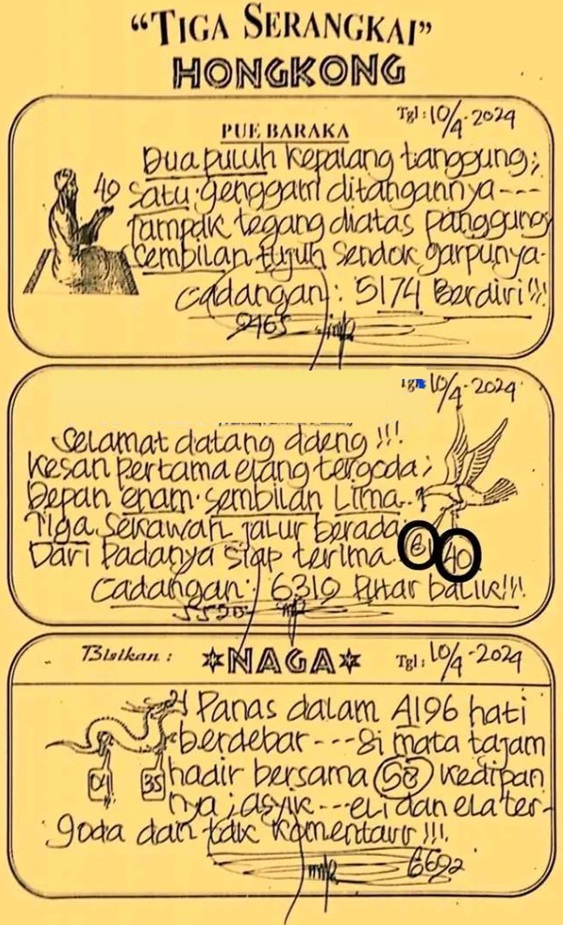 “TIGA SERANGKAI”
HONGKONG
Tgl: 10/4-2024
PUE BARAKA
Dua puluh kepalang tanggung;
40 satu genggam ditangannya---
Tampak tegang diatas panggung
Sembilan tujuh sendok garpunya-
Cadangan: 5174 Berdiri!!!
9465
Tgl: 10/4-2024
Selamat datang daeng!!!
Kesan pertama elang tergoda;
Depan enam sembilan Lima..
Tiga sekawan jalur berada
Dari Padanya siap terima. 6 40
Cadangan: 6310 Putar balik!!!
Bisikan: NAGA Tgl: 10/4-2024
Panas dalam A196 hati
berdebar---si mata tajam
35 hadir bersama 58 kedipan
nya; asyik---eli dan ela ter-
goda dan tak komentarr!!!
6692